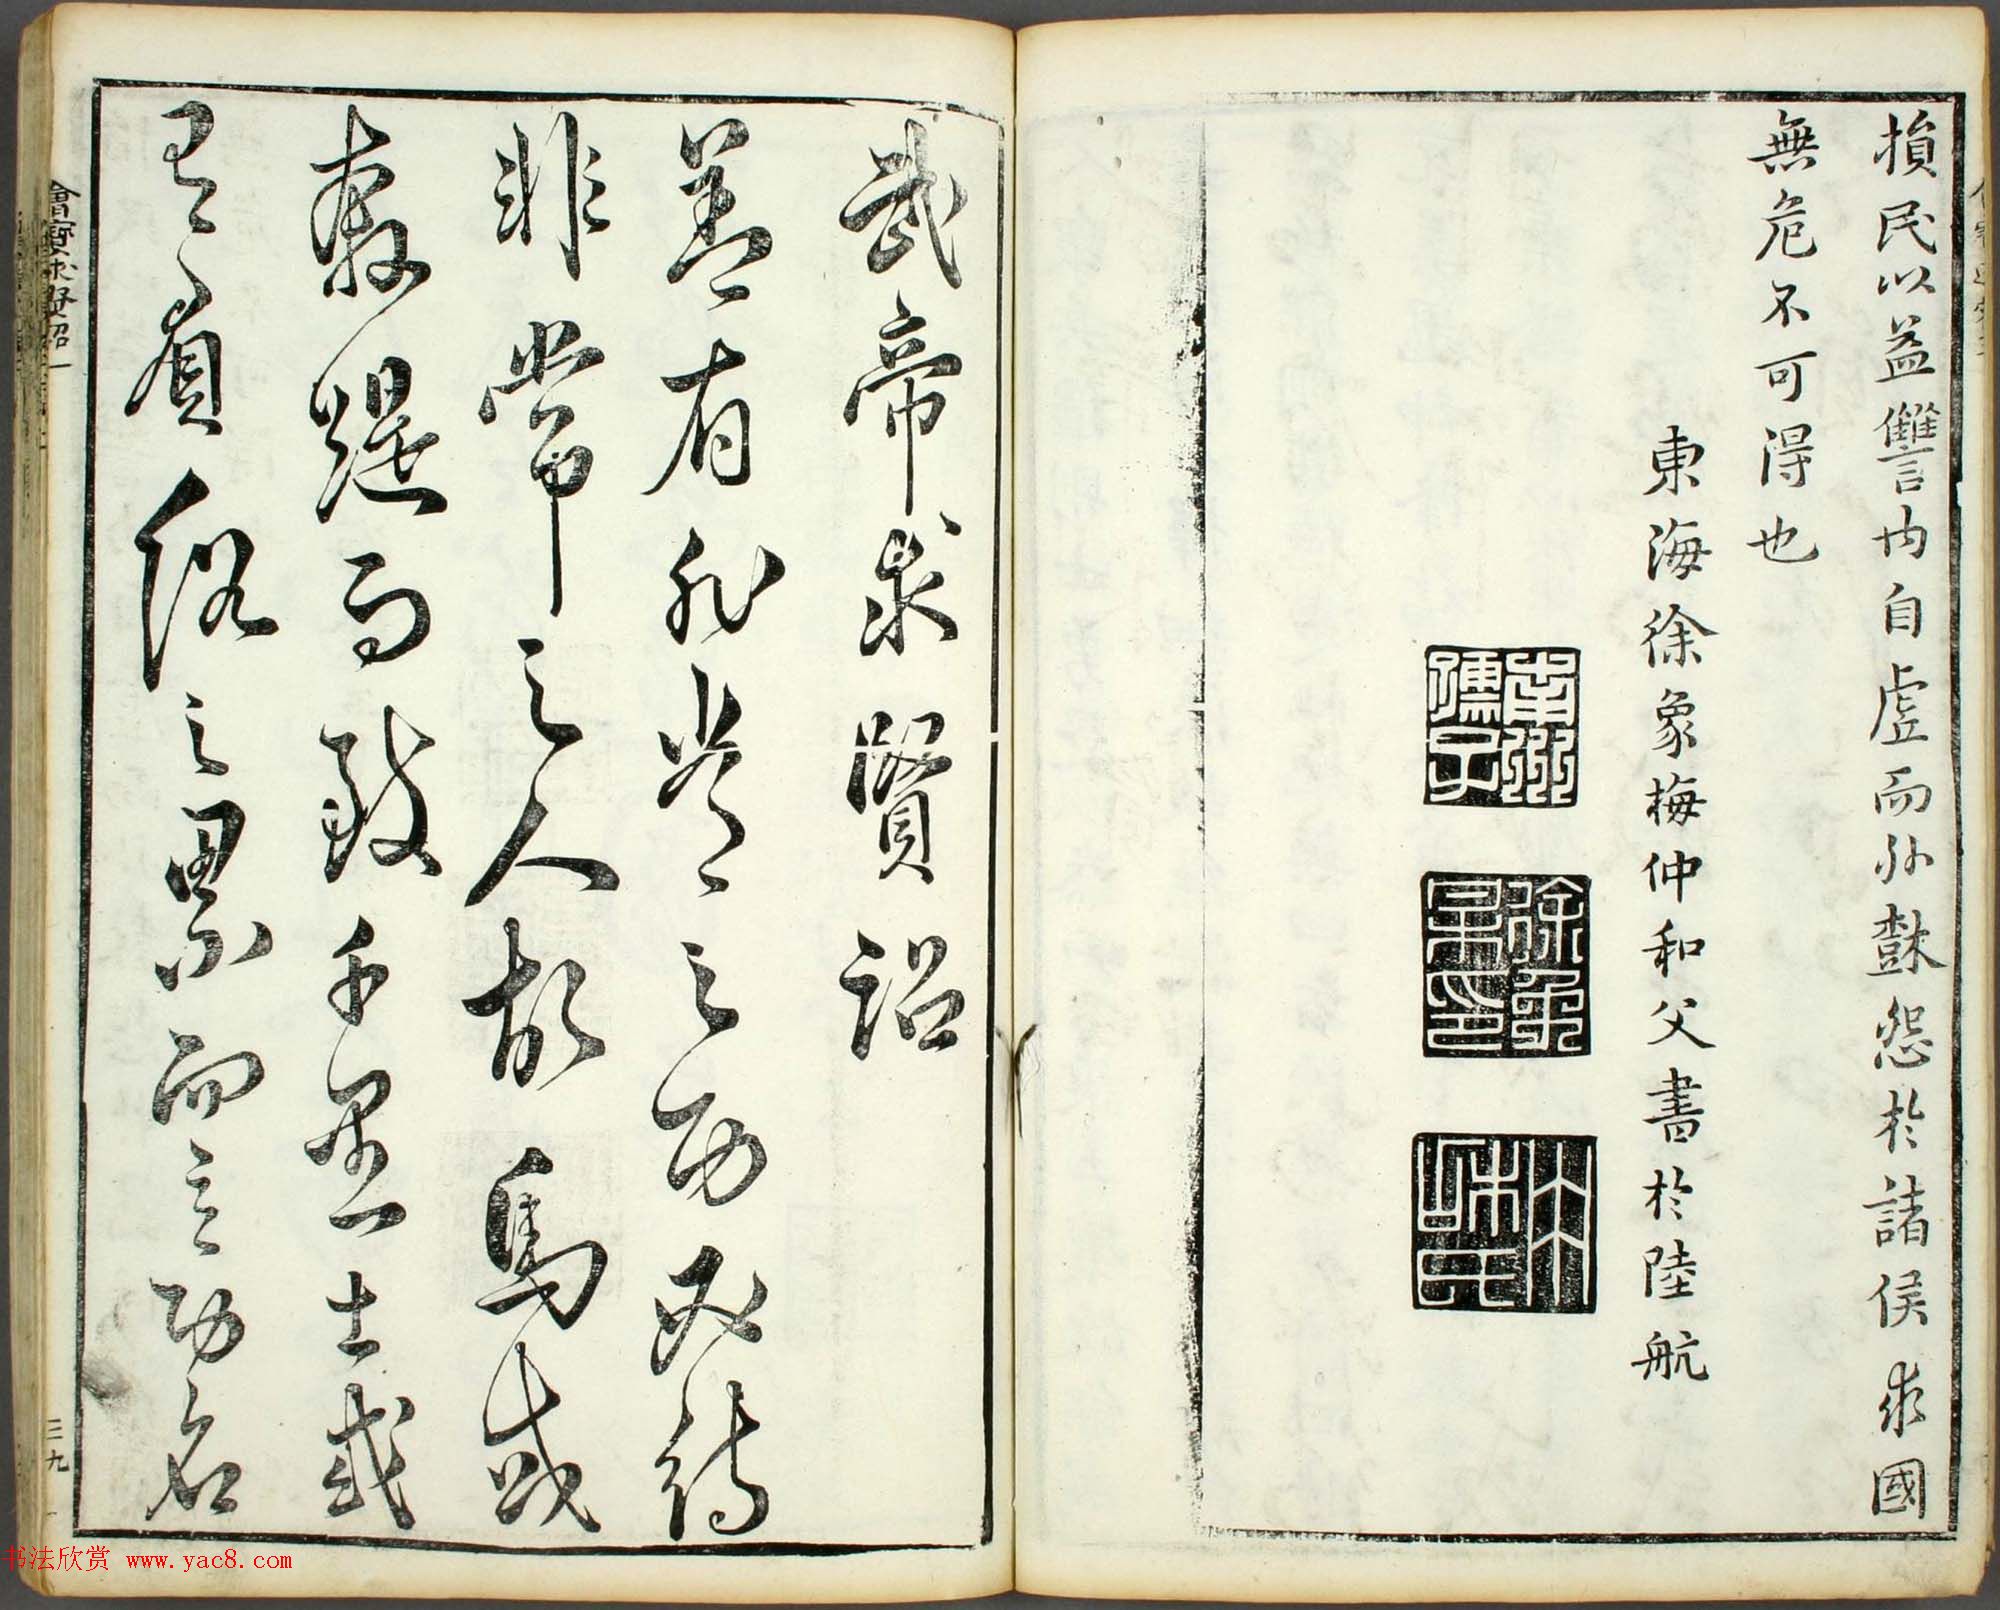 損民以益讐內自虛而外樹怨於諸侯求國
無危不可得也
東海徐象梅仲和父書於陸航
南州孺子
徐象某印
武帝求賢詔
蓋有非常之功必待
非常之人故馬或
奔踶而致千里士或
有負俗之累而立功名
會寶求賢詔一
三九
书法欣赏 www.yac8.com